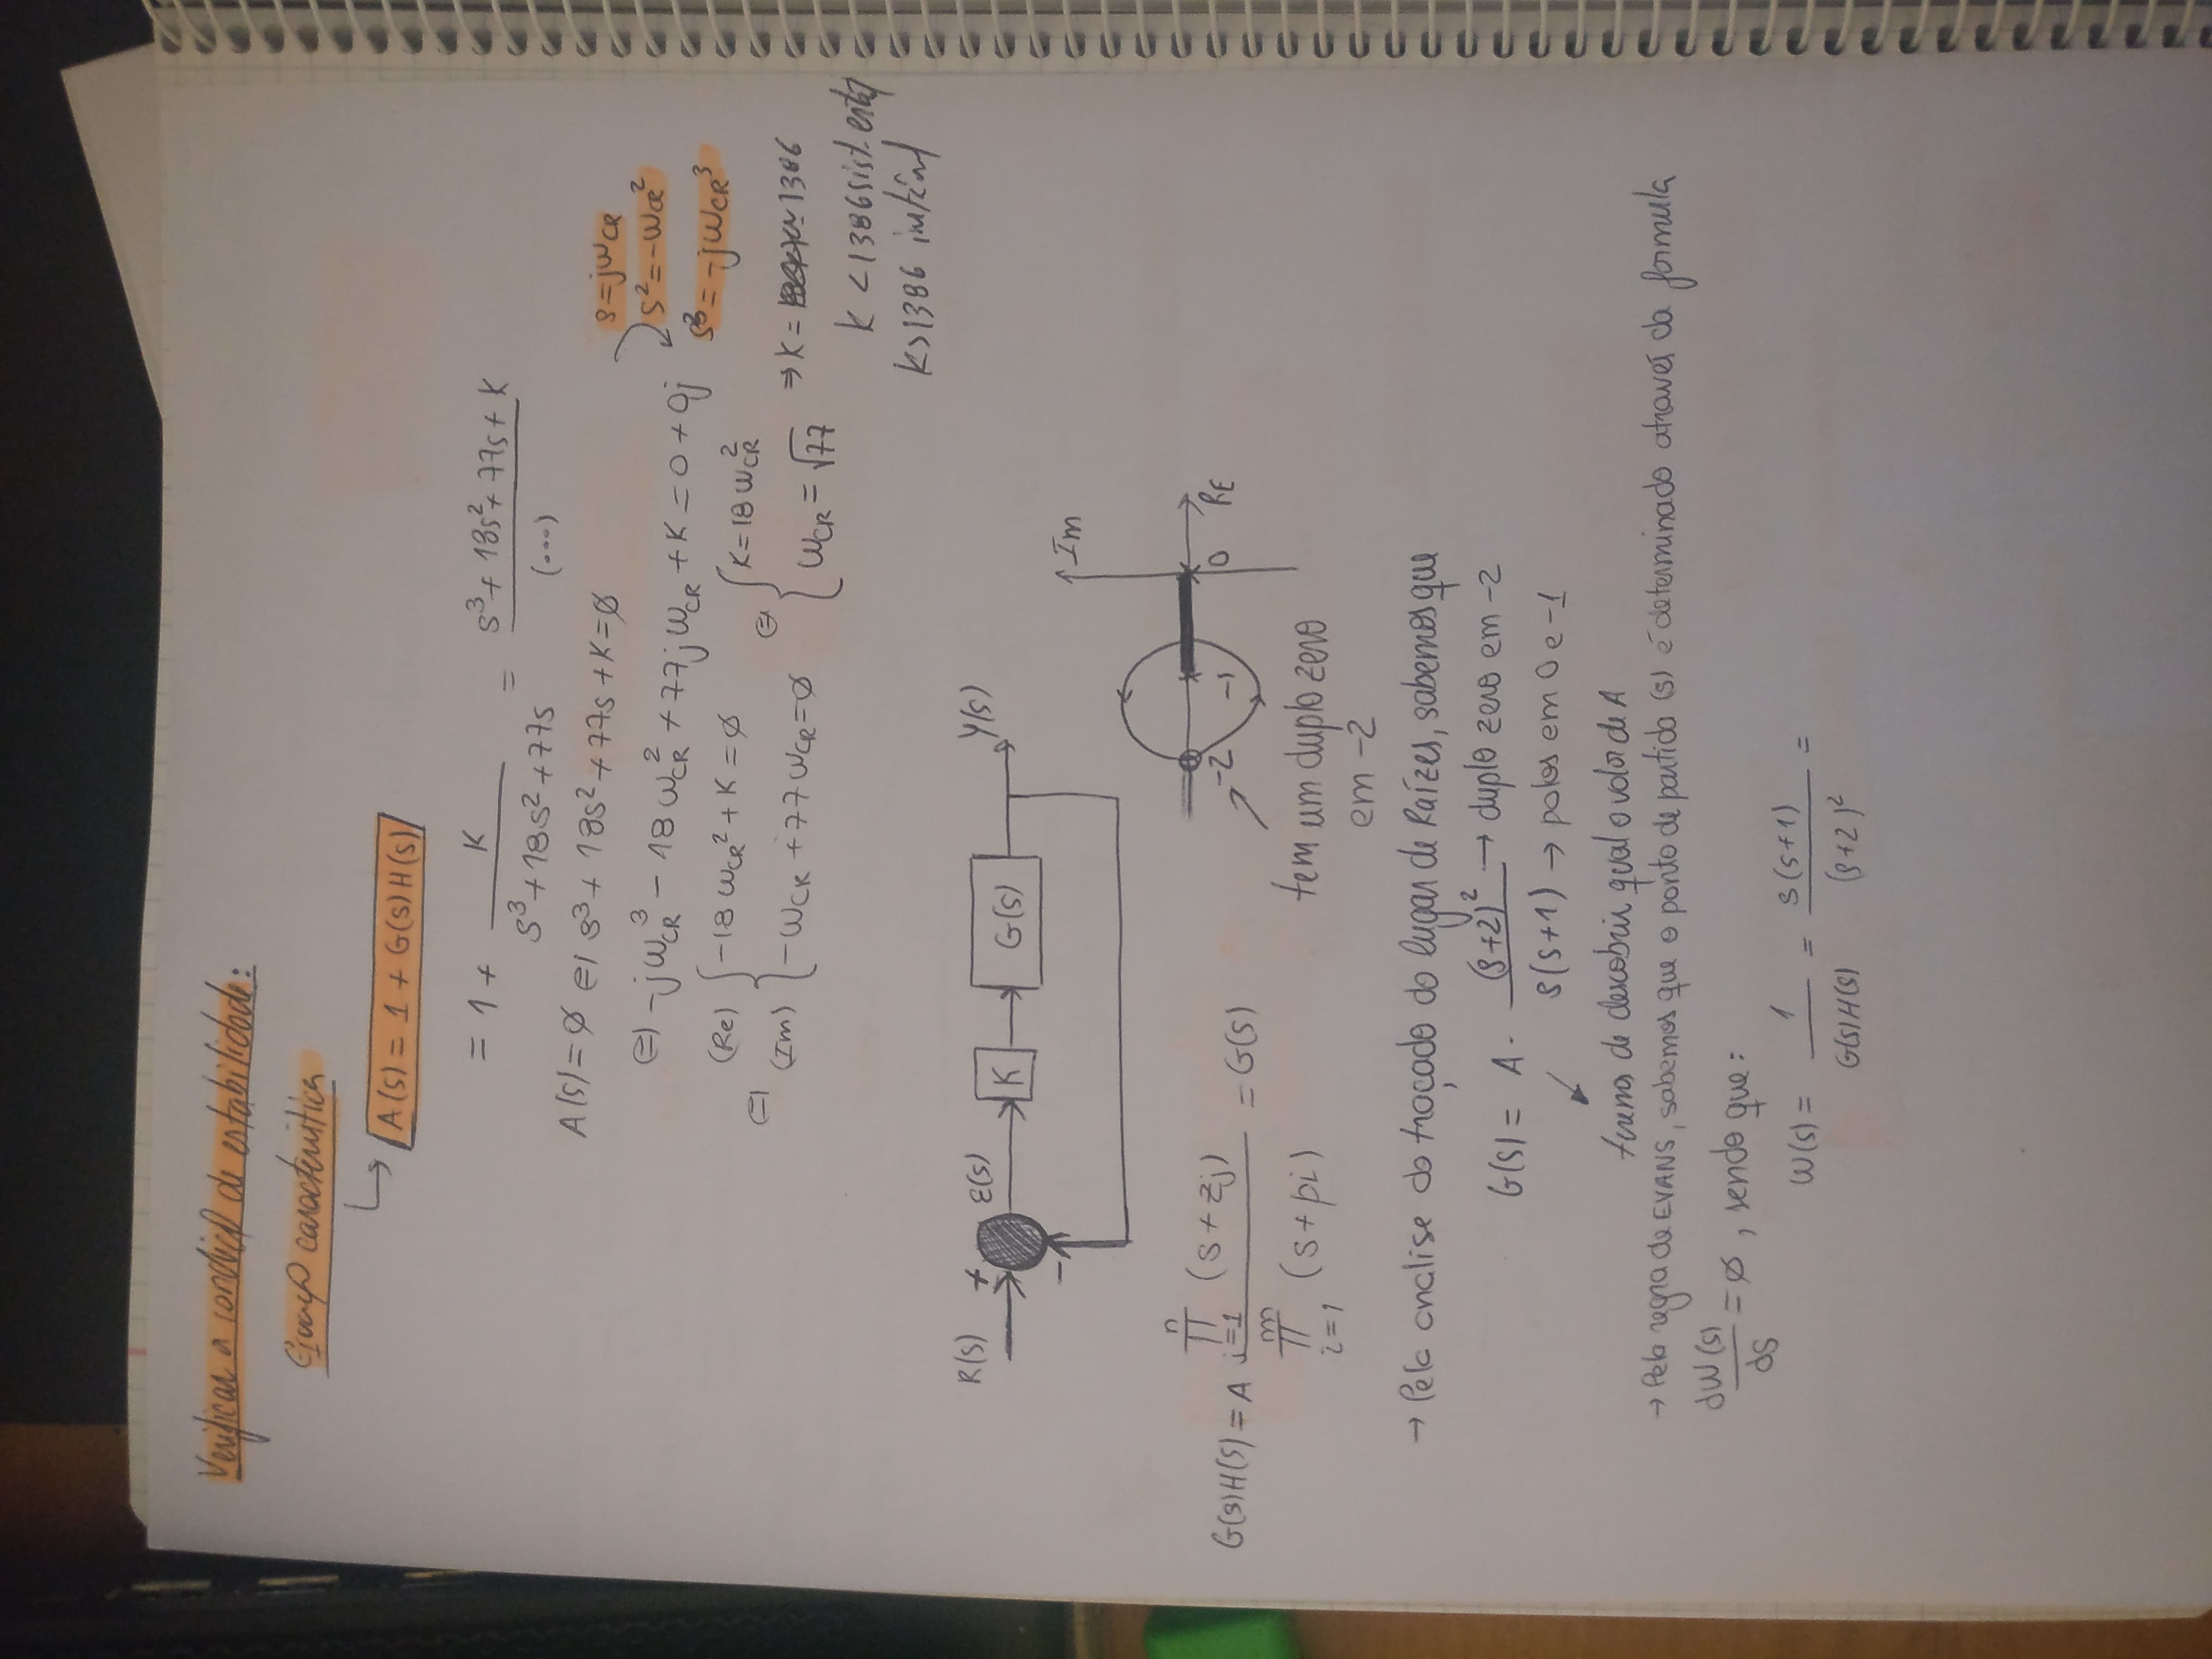 Verificar a condição de estabilidade:
Equação característica
↳ A(s) = 1 + G(s)H(s)
= 1 + K / (s³+18s²+77s) = (s³+18s²+77s+K) / (...)
A(s)=∅ ⇔ s³+18s²+77s+K=∅
s=jωCR
⇔ -jωCR³ - 18ωCR² + 77jωCR + K = 0 + 0j
s²=-ωCR²
s³=-jωCR³
⇔ (Re) { -18ωCR² + K = ∅ ⇔ { K=18ωCR²
(Im) { -ωCR + 77ωCR=∅ { ωCR = √77 ⇒ K = 1386
K < 1386 sist. estáv
K>1386 instável
R(s) + ε(s) K G(s) Y(s)
-
Im
-2 -1 0 RE
G(s)H(s) = A ∏ⁿj=1 (s+zj) / ∏ᵐi=1 (s+pi) = G(s)
tem um duplo zero
em -2
→ Pela analise do traçado do lugar de Raízes, sabemos que
G(s) = A · (s+2)² / s(s+1)
→ duplo zero em -2
→ polos em 0 e -1
temos de descobrir qual o valor de A
→ Pela regra de EVANS, sabemos que o ponto de partida (s) é determinado através da formula
dW(s)/ds = ∅, sendo que:
W(s) = 1 / G(s)H(s) = s(s+1) / (s+2)² =